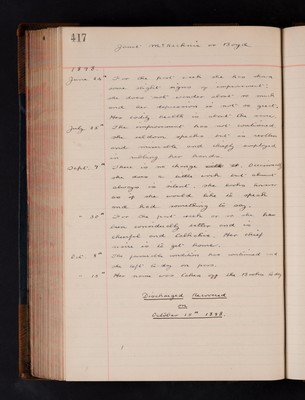 417
Janet McKechnie or Boyd
1898
June 24th For the past week she has shown
some slight signs of improvement;
she does not wander about so much
and her depression is not so great.
Her bodily health is about the same.
July 25th The improvement has not continued
she seldom speaks but is restless
and miserable and chiefly employed
in rubbing her hands.
Sept. 9th There is no change with it. Occasionally
she does a little work but almost
always is silent. She looks
as if she would like to speak
and had something to say.
" 30th For the past week or so she has
been considerably better and is
cheerful and talkative. Her chief
is to get home.
Oct. 8th The favourable condition has continued and
she left to-day on pass.
" 15th Her name was taken off the Books to-day
Discharged Recovered
on
October 15th 1898.